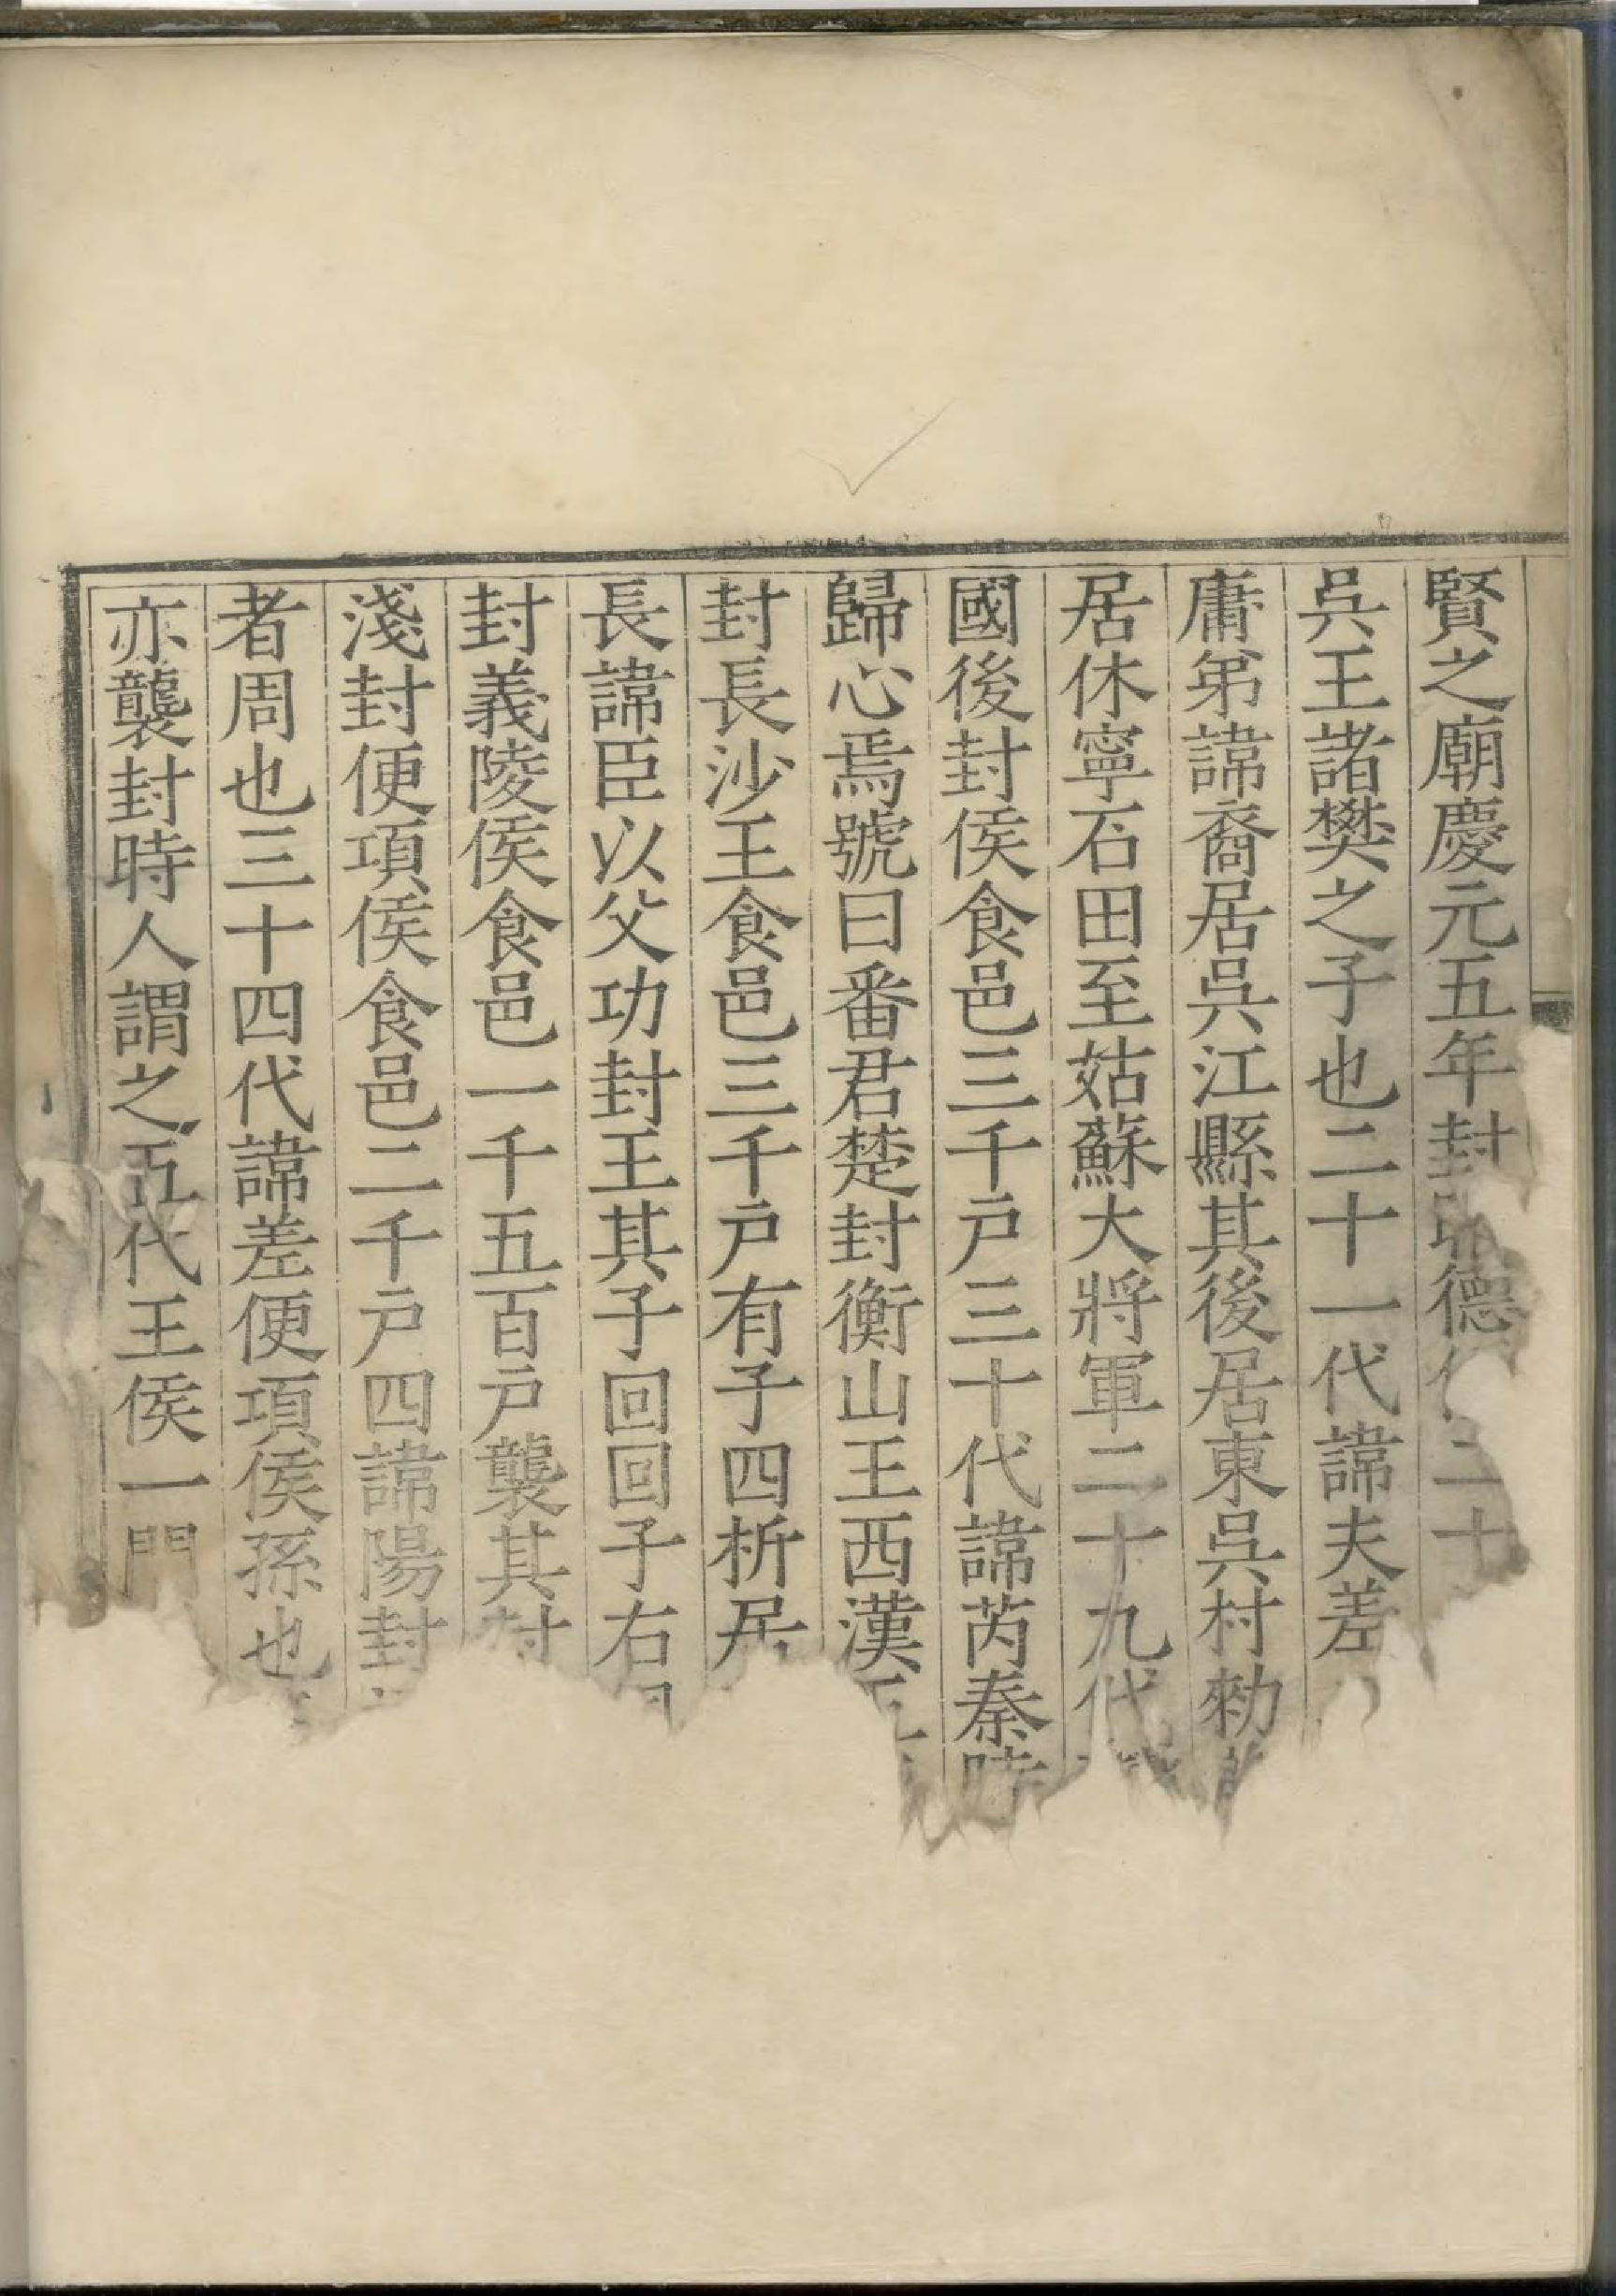 賢之廟慶元五年封昭德侯二十
吳王諸樊之子也二十一代諱夫差
庸弟諱裔居吳江縣其後居東吳村勑
居休寧石田至姑蘇大將軍二十九代
國後封侯食邑三千戶三十代諱芮秦時
歸心焉號曰番君楚封衡山王西漢
封長沙王食邑三千戶有子四析居
長諱臣以父功封王其子回回子右
封義陵侯食邑一千五百戶襲其封
淺封便項侯食邑二千戶四諱陽封
者周也三十四代諱差便項侯孫也
亦襲封時人謂之五代王侯一門